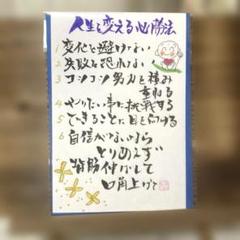 人生を変える必勝法
1 変化を避けない
2 失敗を恐れない
3 コツコツ努力を積み
重ねる
4 やりたい事に挑戦する
5 できることに目を向ける
6 自信がないなら
とりあえず
背筋伸ばして
口角上げて